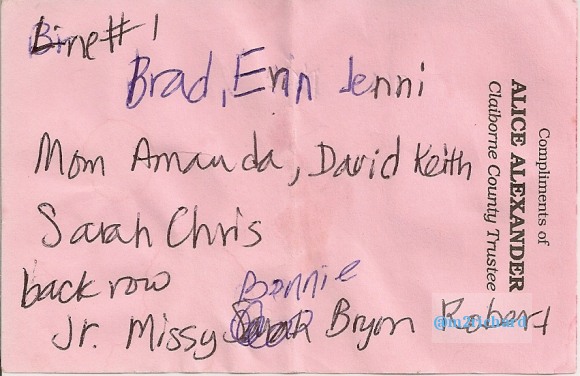 Line #1
Brad, Erin Jenni
Mom Amanda, David Keith
Sarah Chris
back row
Bonnie
Jr. Missy Sarah Bryon Robert
Compliments of
ALICE ALEXANDER
Claiborne County Trustee
@m2richard